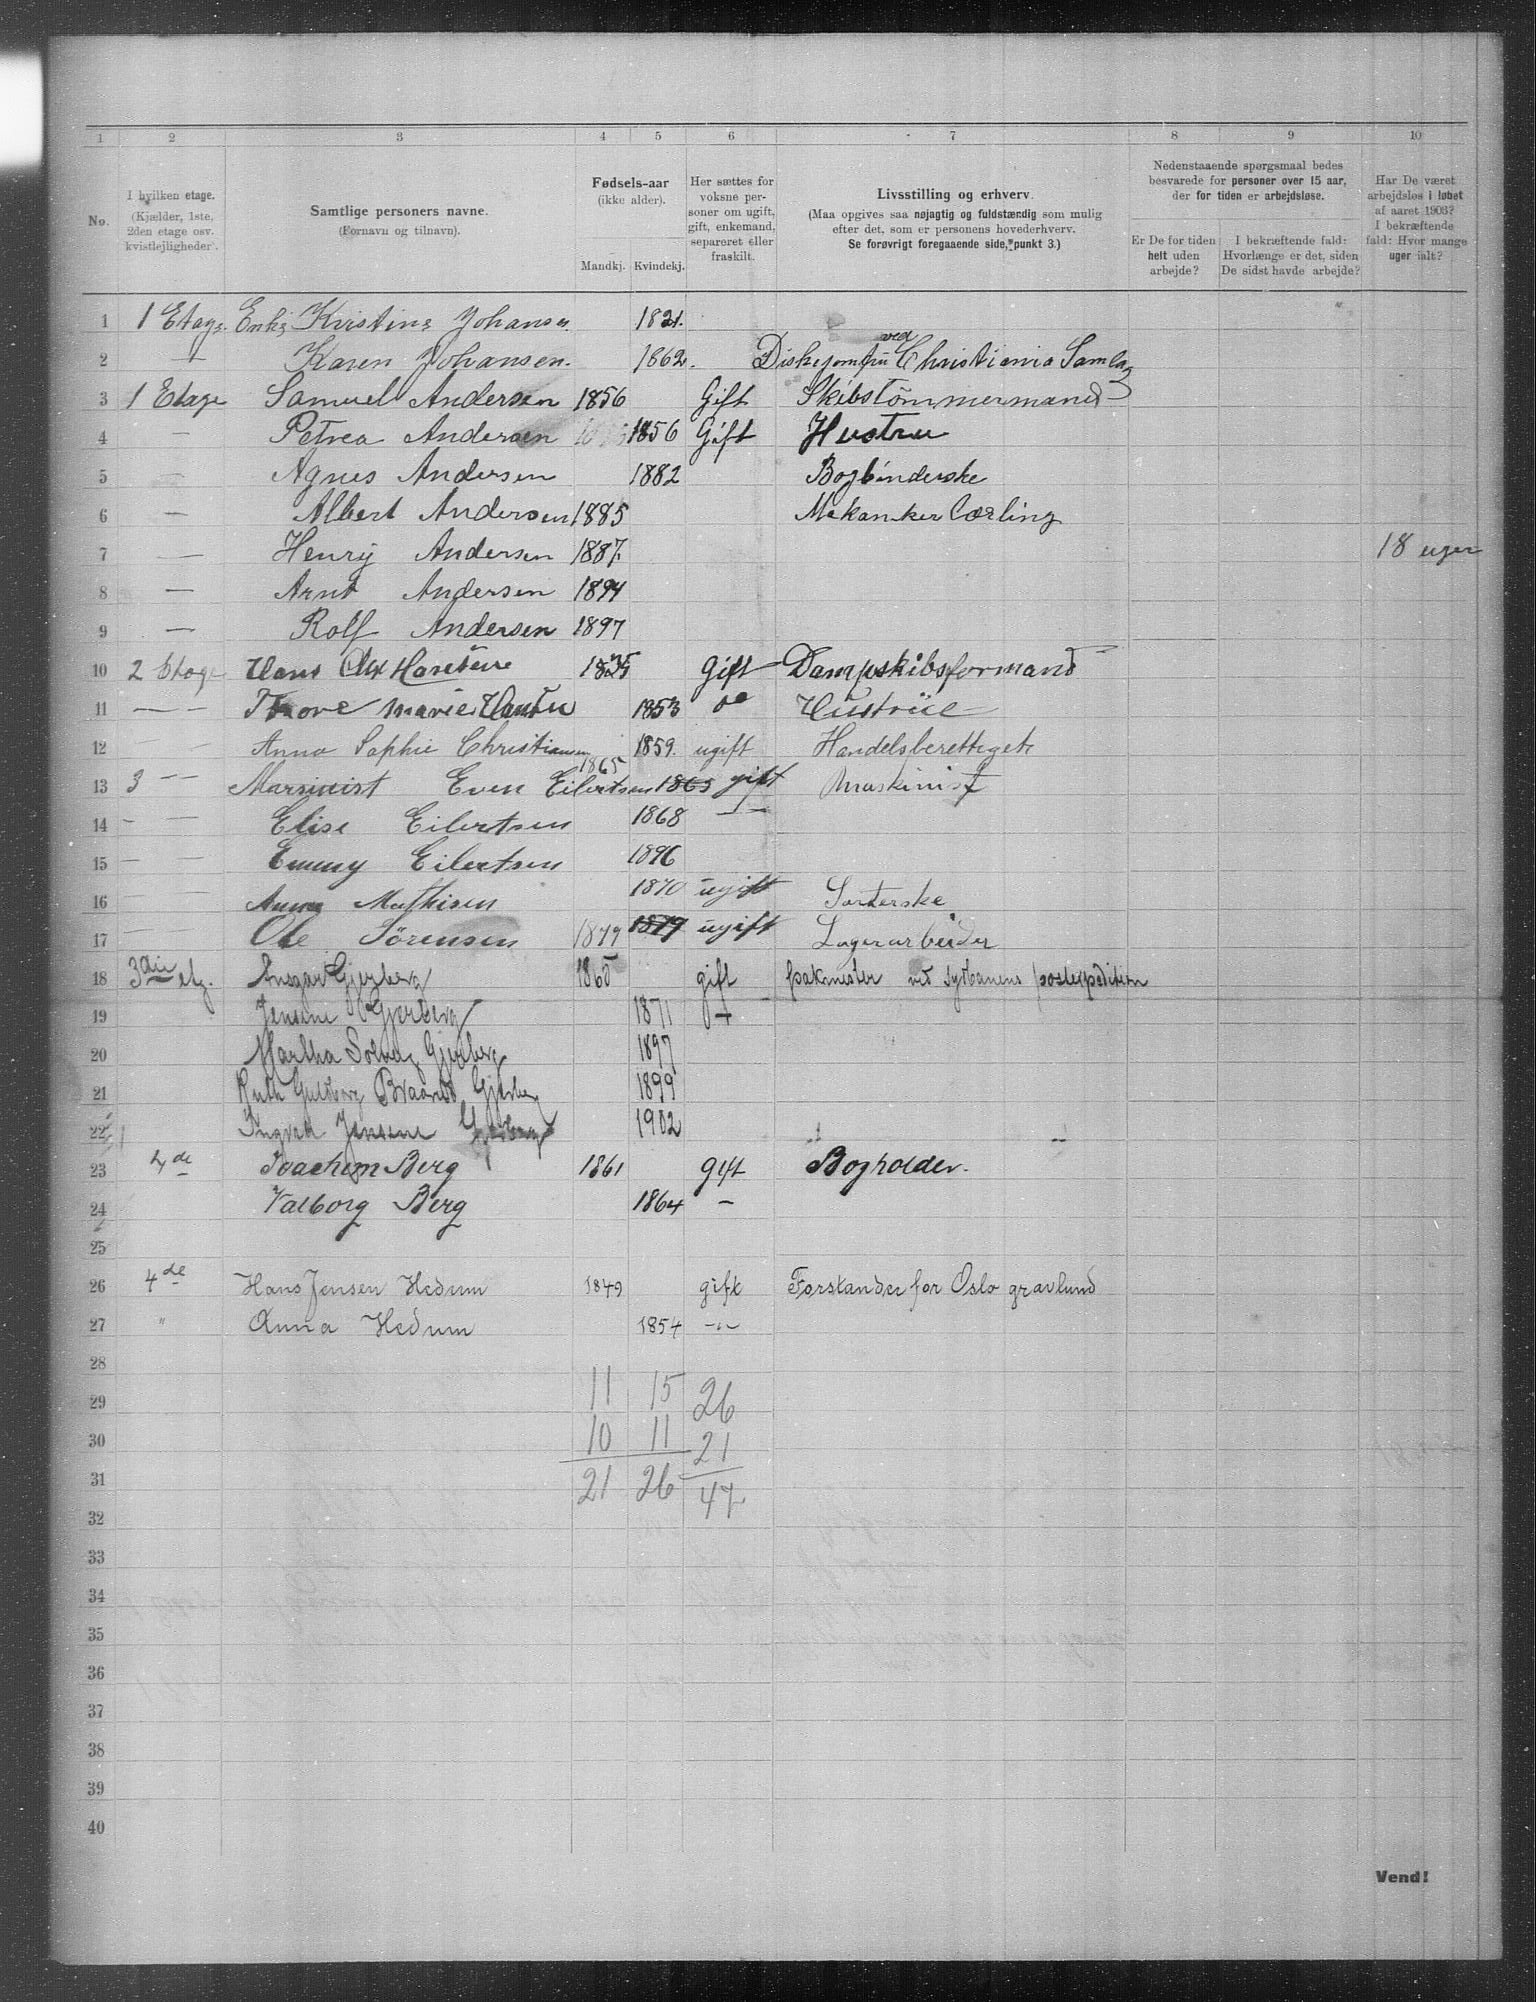 1 2 3 4 5 6 7 8 9 10
No.
I hvilken etage.
(Kjælder, 1ste,
2den etage osv.
kvistlejligheder).
Samtlige personers navne.
(Fornavn og tilnavn).
Fødsels-aar
(ikke alder).
Mandkj. Kvindekj.
Her sættes for
voksne per-
soner om ugift,
gift, enkemand,
separeret eller
fraskilt.
Livsstilling og erhverv.
(Maa opgives saa nøjagtig og fuldstændig som mulig
efter det, som er personens hovederhverv.
Se forøvrigt foregaaende side, punkt 3.)
Nedenstaaende spørgsmaal bedes
besvarede for personer over 15 aar,
der for tiden er arbejdsløse.
Er De for tiden
helt uden
arbejde?
I bekræftende fald:
Hvorlænge er det, siden
De sidst havde arbejde?
Har De været
arbejdsløs i løbet
af aaret 1903?
I bekræftende
fald: Hvor mange
uger ialt?
1 1 Etage. Enke Kristine Johansen 1821.
2 — Karen Johansen. 1862. Diskejomfru ved Christiania Samlag
3 1 Etage Samuel Andersen 1856 Gift Skibstömmermand
4 — Petrea Andersen 1856 Gift Hustru
5 — Agnes Andersen 1882 Bogbinderske
6 — Albert Andersen 1885 Mekaniker Lærling
7 — Henry Andersen 1887. 18 uger
8 — Arnt Andersen 1894
9 — Rolf Andersen 1897
10 2 Etage Hans Chr Hansen gift Dampskibsformand
11 — — Marie Hansen 1853 do Hustrüe
12 — — Anna Sophie Christiansen 1859. ugift Handelsberettiget
13 3 — — Maskinist Even Eilertsen 1865 1865 gift Maskinist
14 — — Elise Eilertsen 1868 — —
15 — — Emmy Eilertsen 1896
16 — — Anna Mathisen 1870 ugift Sorterske
17 — — Ole Sörensen 1879 1879 ugift Lagerarbeider
18 3die etg. Ansgar Gjerberg 1865 gift pakmester ved Sydbanens postexpedition
19 Jensine Gjerberg 1871
20 Martha Solveig Gjerberg 1897
21 Ruth Guldborg Braarud Gjerberg 1899
22 Ingvald Jensine Gjerberg 1902
23 4de Joachim Berg 1861 gift Bogholder.
24 Valborg Berg 1864 —
25
26 4de Hans Jensen Hedum 1849 gift Forstander for Oslo gravlund
27 " Anna Hedum 1854 —"—
28
29 11 15 26
30 10 11 21
31 21 26 47
32
33
34
35
36
37
38
39
40
Vend!